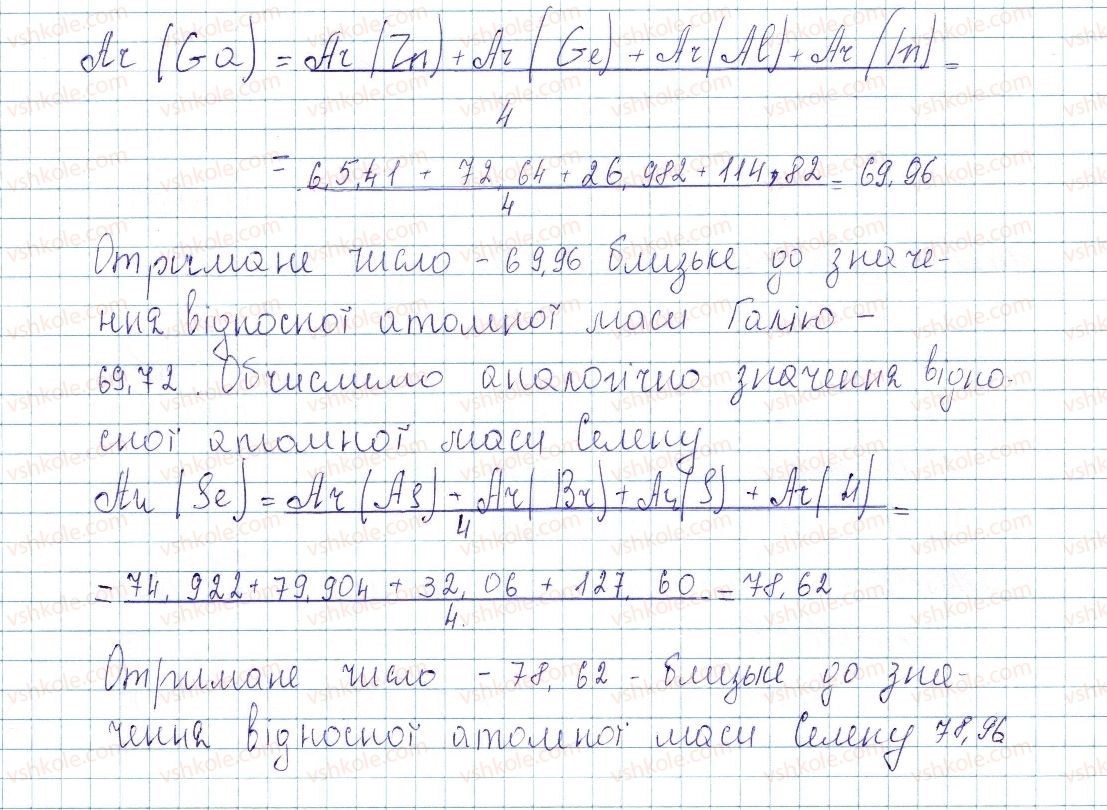 Ar (Ga) = Ar (Zn) + Ar (Ge) + Ar (Al) + Ar (In) =
4
= 6,5,41 + 72,64 + 26,982 + 114,82 = 69,96
4
Отримане число - 69,96 близьке до значе-
ння відносної атомної маси Галію -
69,72. Обчислимо аналогічно значення відно-
сної атомної маси Селену
Ar (Se) = Ar (As) + Ar (Br) + Ar (S) + Ar ( ) =
4
= 74,922 + 79,904 + 32,06 + 127,60 = 78,62
4.
Отримане число - 78,62 - близьке до зна-
чення відносної атомної маси Селену 78,96